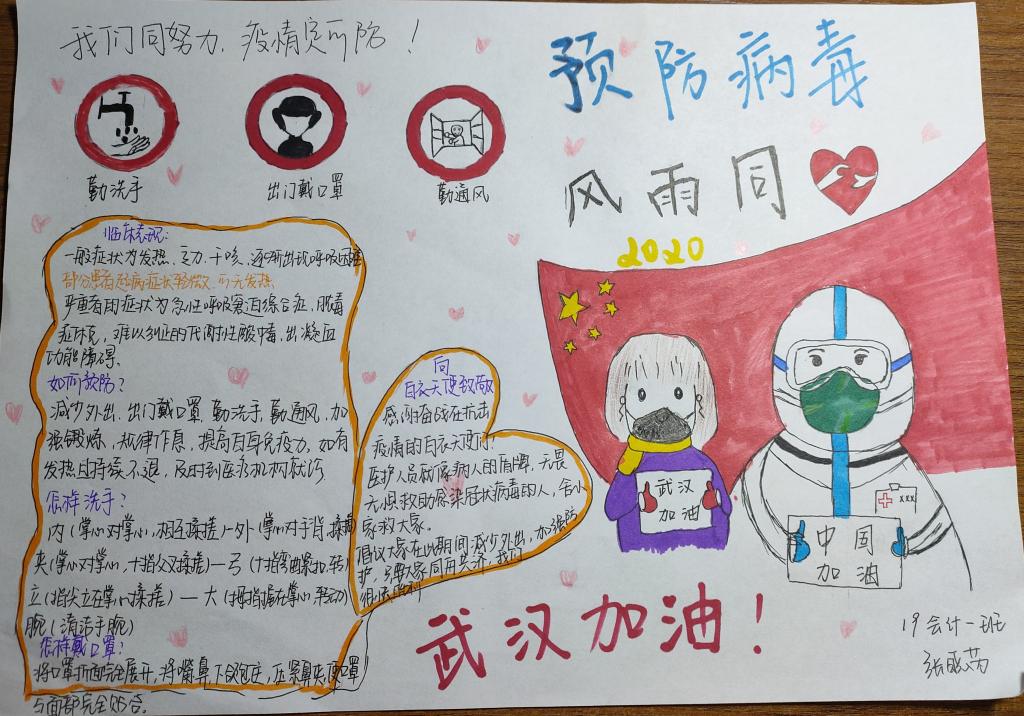 我们同努力,疫情定可防!
预防病毒
风雨同
2020
勤洗手
出门戴口罩
勤通风
临床表现:
一般症状为发热、乏力、干咳、逐渐出现呼吸困难
部分患者起病症状轻微,可无发热
严重者的症状为急性呼吸窘迫综合症,脓毒
症休克,难以纠正的代谢性酸中毒、出凝血
功能障碍。
如何预防?
减少外出、出门戴口罩,勤洗手,勤通风,加
强锻炼,规律作息,提高自身免疫力,如有
发热且持续不退,及时到医疗机构就诊
怎样洗手?
内(掌心对掌心,相互揉搓)一外(掌心对手背揉搓)
夹(掌心对掌心,十指交叉揉搓)一弓(十指弯曲紧扣转)
立(指尖立在掌心揉搓)一大(拇指握在掌心转动)
腕(清洁手腕)
怎样戴口罩?
将口罩折面完全展开,将嘴鼻下颌包住,压紧鼻夹,使口罩
与面部完全贴合。
向
白衣天使致敬
感谢奋战在抗击
疫情的白衣天使们!
医护人员就像病人的盾牌,无畏
无惧救助感染冠状病毒的人,舍小
家救大家。
倡议大家在此期间减少外出,加强防
护,与大家同舟共济,我们
武汉
加油
中国
加油
武汉加油!
19会计一班